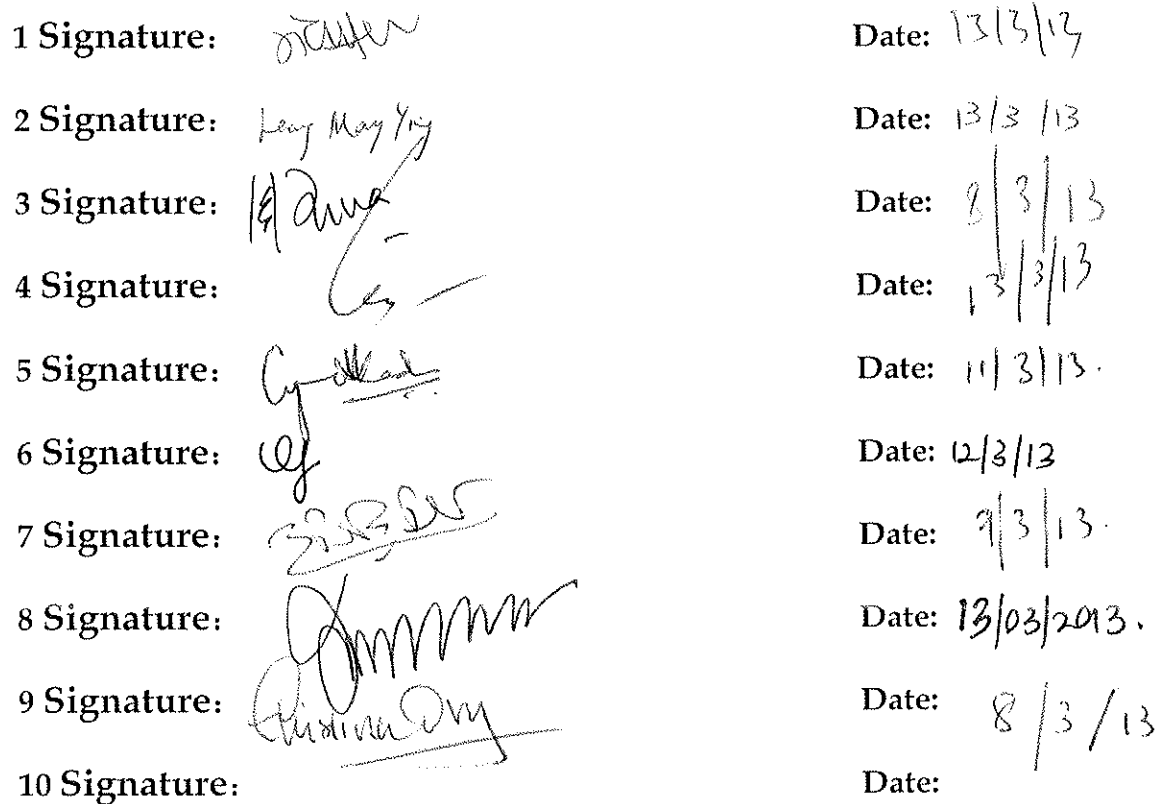 1 Signature: Date: 13/3/13
2 Signature: Leng May Ying Date: 13/3/13
3 Signature: Date: 8/3/13
4 Signature: Date: 13/3/13
5 Signature: Date: 11/3/13.
6 Signature: Date: 12/3/13
7 Signature: Date: 9/3/13.
8 Signature: Date: 13/03/2013.
9 Signature: Christina Ong Date: 8/3/13
10 Signature: Date: